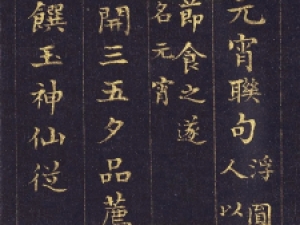 元宵聯句浮圓
人以
節食之遂
名元宵
開三五夕品薦
饌玉神仙從